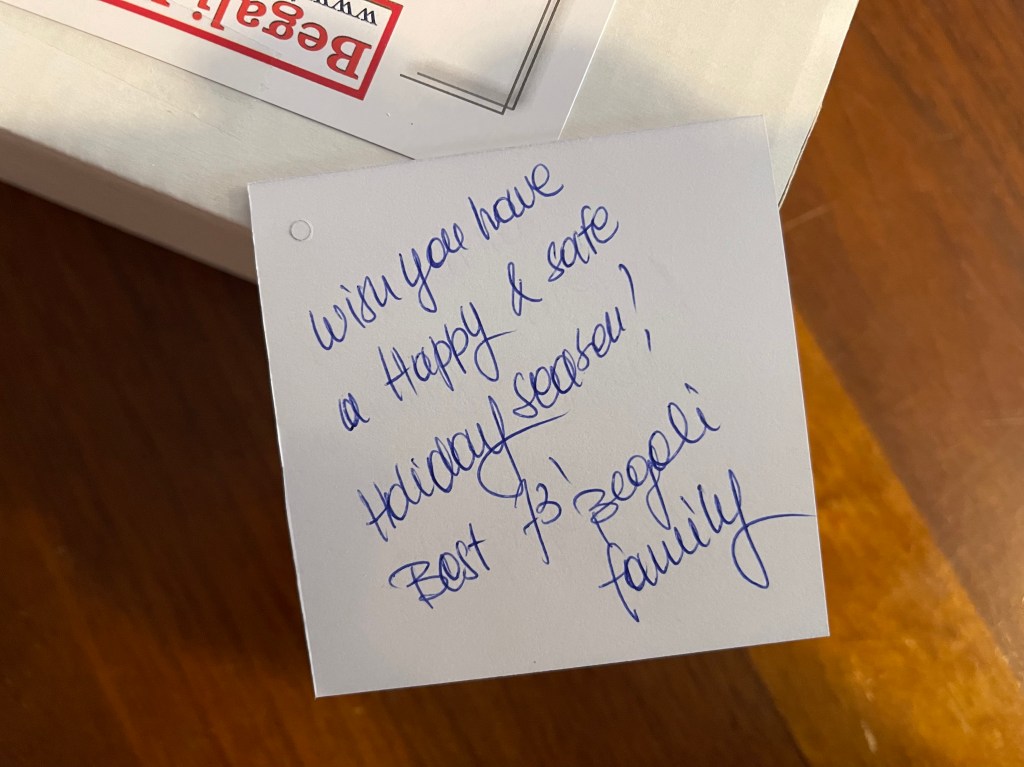 Begali
www.
Wish you have
a Happy & safe
Holiday season!
Best 73' Begali
family